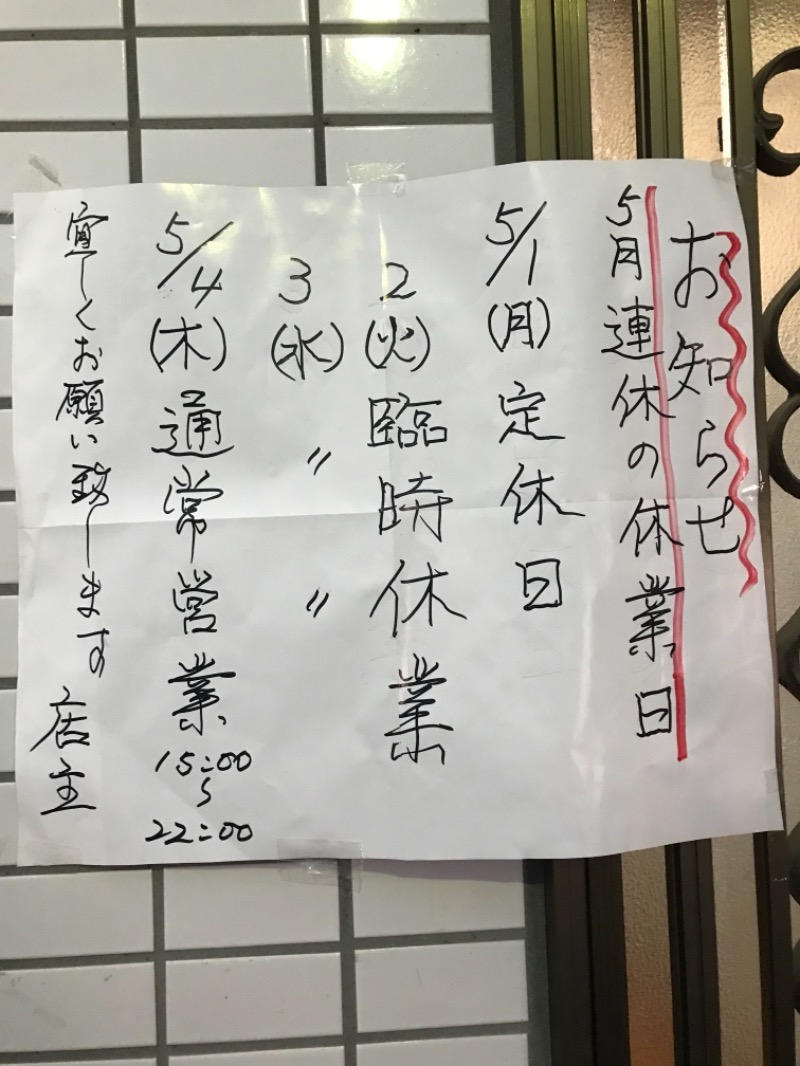 お知らせ
5月連休の休業日
5/1(月)定休日
2(火)臨時休業
3(水)〃 〃
5/4(木)通常営業
15:00
〜
22:00
宜しくお願い致します 店主